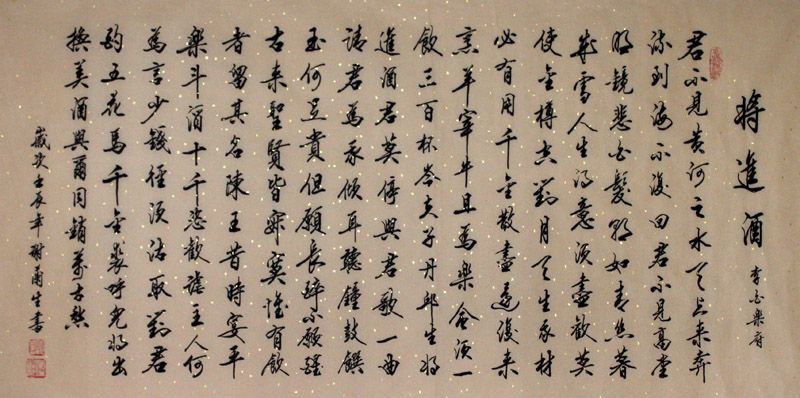 將進酒 李白樂府
君不見黃河之水天上来奔
流到海不復回君不見高堂
明鏡悲白髮朝如青絲暮
成雪人生得意須盡歡莫
使金樽空對月天生我材
必有用千金散盡還復来
烹羊宰牛且為樂會須一
飲三百杯岑夫子丹邱生將
進酒君莫停與君歌一曲
請君為我傾耳聽鐘鼓饌
玉何足貴但願長醉不願醒
古来聖賢皆寂寞惟有飲
者留其名陳王昔時宴平
樂斗酒十千恣歡謔主人何
為言少錢徑須沽取對君
酌五花馬千金裘呼兒將出
換美酒與爾同銷萬古愁
歲次壬辰年謝生書